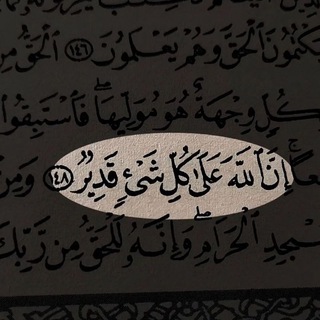 يَكْتُمُونَ ٱلْحَقَّ وَهُمْ يَعْلَمُونَ ١٤٦ ٱلْحَقُّ مِن
وَلِكُلٍّ وِجْهَةٌ هُوَ مُوَلِّيهَا ۖ فَٱسْتَبِقُوا
إِنَّ ٱللَّهَ عَلَىٰ كُلِّ شَىْءٍ قَدِيرٌ ١٤٨ وَمِنْ
ٱلْحَرَامِ ۖ وَإِنَّهُۥ لَلْحَقُّ مِن رَّبِّكَ